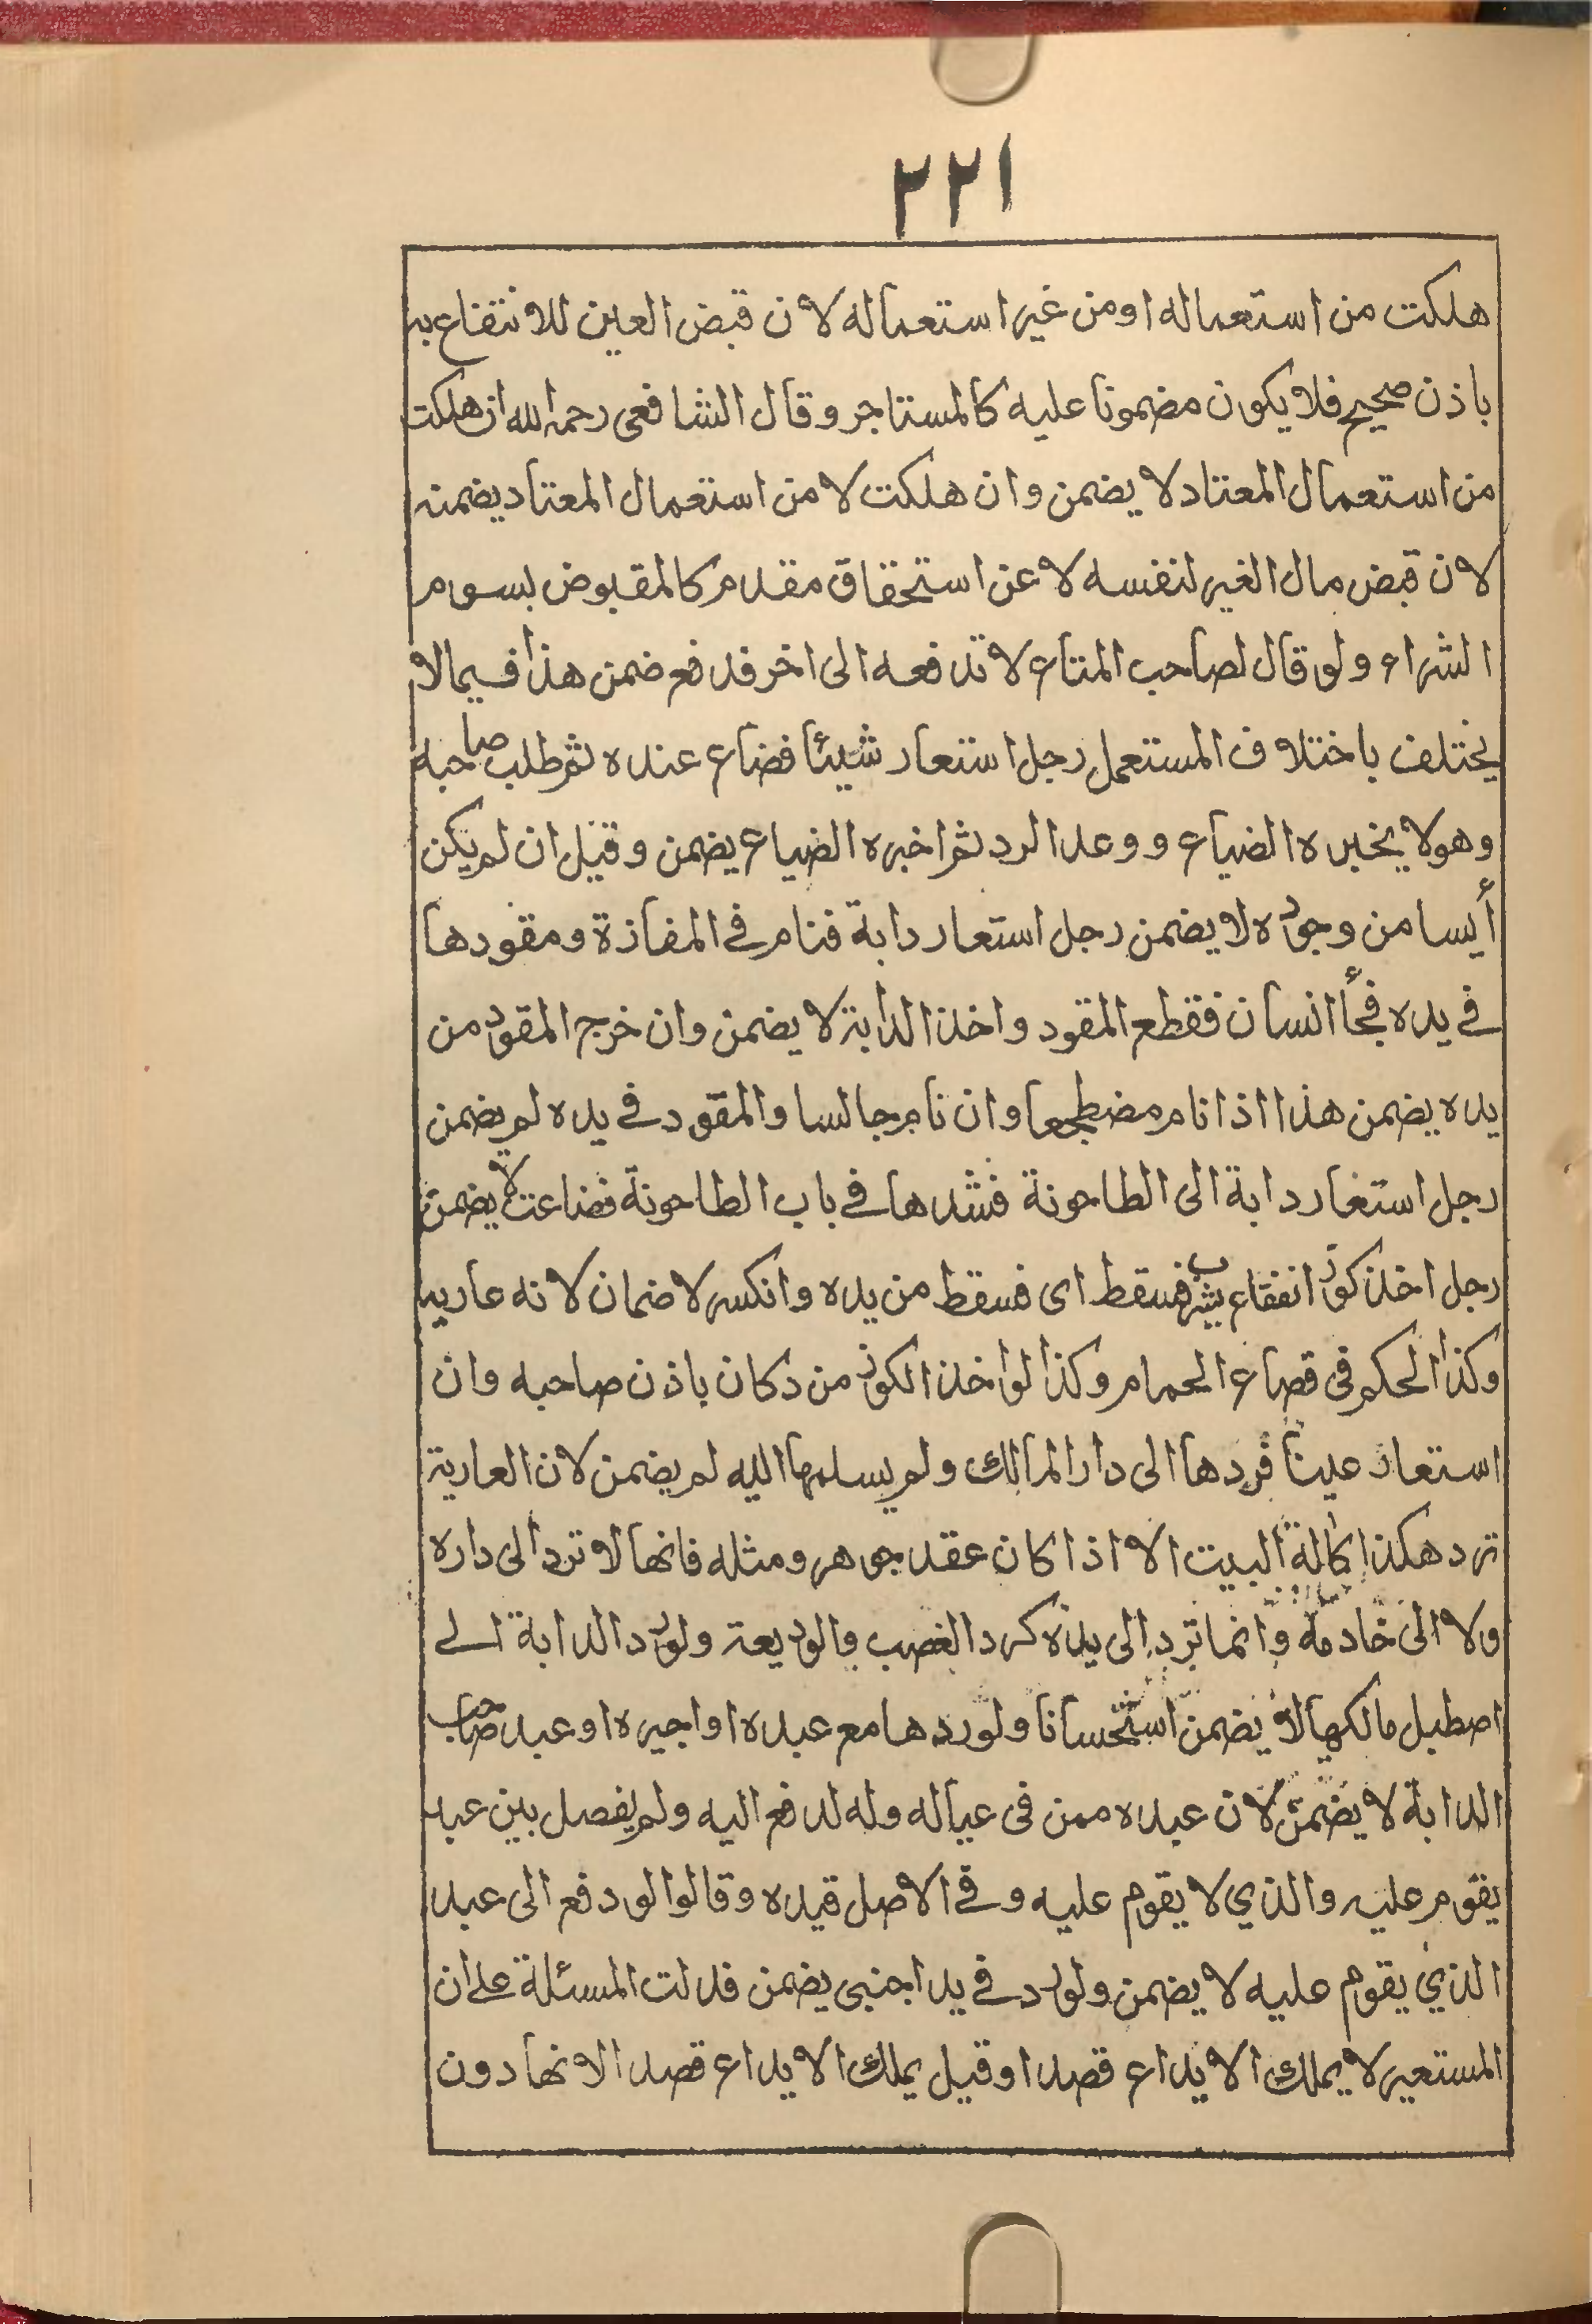 ٢٢١
هلكت من استعماله او من غير استعماله لان قبض العين للانتفاع به
باذن صحيح فلا يكون مضمونا عليه كالمستاجر وقال الشافعى رحمه الله ان هلكت
من استعمال المعتاد لا يضمن وان هلكت لا من استعمال المعتاد يضمنه
لان قبض مال الغير لنفسه لا عن استحقاق مقدم كالمقبوض بسوم
الشراء ولو قال لصاحب المتاع لا تدفعه الى اخر فدفع ضمن هذا فيما لا
يختلف باختلاف المستعمل رجل استعار شيئا فضاع عنده ثم طلب صاحبه
وهو لا يخبره الضياع ووعد الرد ثم اخبره الضياع يضمن وقيل ان لم يكن
أيسا من وجوده لا يضمن رجل استعار دابة فنام فى المفازة ومقودها
فى يده فجأ انسان فقطع المقود واخذ الدابة لا يضمن وان خرج المقود من
يده يضمن هذا اذا نام مضطجعا وان نام جالسا والمقود فى يده لم يضمن
رجل استعار دابة الى الطاحونة فشدها فى باب الطاحونة فضاعت لا يضمن
رجل اخذ كوز انفقاع يشرب فسقط اى فسقط من يده وانكسر لا ضمان لانه عارية
وكذا الحكم فى قصاع الحمام وكذا لو اخذ الكوز من دكان باذن صاحبه وان
استعار عينا فردها الى دار المالك ولم يسلمها اليه لم يضمن لان العارية
ترد هكذا كالة البيت الا اذا كان عقد جوهر ومثله فانها لا ترد الى داره
ولا الى خادمه وانما ترد الى يده كرد الغصب والوديعة ولو رد الدابة الى
اصطبل مالكها لا يضمن استحسانا ولو ردها مع عبده او اجيره او عبد صاحب
الدابة لا يضمن لان عبده ممن فى عياله وله لدفع اليه ولم يفصل بين عبد
يقوم عليه والذي لا يقوم عليه وفى الاصل قيده وقالوا لو دفع الى عبد
الذي يقوم عليه لا يضمن ولو رد فى يد اجنبى يضمن فدلت المسئلة على ان
المستعير لا يملك الايداع قصدا وقيل يملك الايداع قصد الانها دون